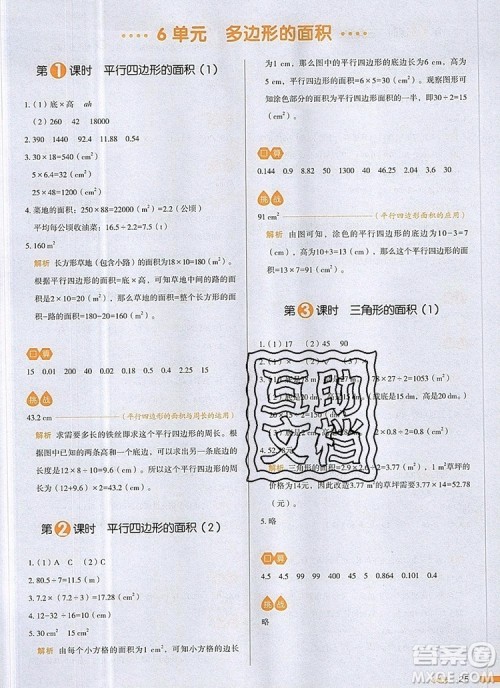 6 单元 多边形的面积
第1课时 平行四边形的面积（1）
1.（1）底×高 ah
（2）260 42 18000
2. 390 1440 92.4 11.88 0.54
3. 30×18=540（cm²）
5×6.4=32（cm²）
25×48=1200（cm²）
4. 菜地的面积：250×88=22000（m²）=2.2（公顷）
平均每公顷收油菜：16.5÷2.2=7.5（t）
5. 160 m²
解析 长方形草地（包含小路）的面积是
18×10=180（m²），草地中间的小路的面积
是2×10=20（m²），整个长方形的面积-
小路的面积=草地的面积，因此草地的面积
=180-20=160（m²）。
口算
15 0.01 200 40 2 21 0.42 0.2
挑战
43.2 cm （平行四边形的面积与周长的运用）
解析 求需要多长的铁丝即求平行四边形的周长。根
据图中已知的两条高和一条底，可以求出面积是
12×8=96（cm²），那么96÷10=9.6（cm），即
另一条底的长度是9.6 cm。因此平行四边形的周
长是（12+9.6）×2=43.2（cm）。
第2课时 平行四边形的面积（2）
1.（1）A C （2）A B
2. 80.5÷7=11.5（m）
3. 7.2×（7.2÷3）=17.28（cm²）
4. 12-32÷16=10（cm）
5. 15 cm²
解析 由每个小方格的面积为1 cm²，可知每个小方格的边长
为1 cm，那么这个平行四边形的底边长为6 cm，高为
5 cm，因此面积=6×5=30（cm²）。观察图形
可知涂色部分的面积是平行四边形面积的一半，即30÷2=15
（cm²）。
口算
0.144 0.9 8.82 50 1300 40 4.65 32
挑战
91 cm² （平行四边形面积的应用）
解析 由图可知，涂色的平行四边形的底边为10-3=7
（cm），那么这个平行四边形的高为20-7=
13（cm），那么这个涂色的平行四边形的面积
=13×7=91（cm²）。
第3课时 三角形的面积（1）
1.（1）17 （2）45 90
互助
文档
4. 52.78元
解析 三角形的面积=2.9×2.6÷2=3.77（m²），1 m²草坪
的价格为14元，因此3.77 m²的草坪需要3.77×14=52.78
（元）。
5. 略
口算
4.5 4.99 51 100 2.4 0.48 10 64
挑战
略